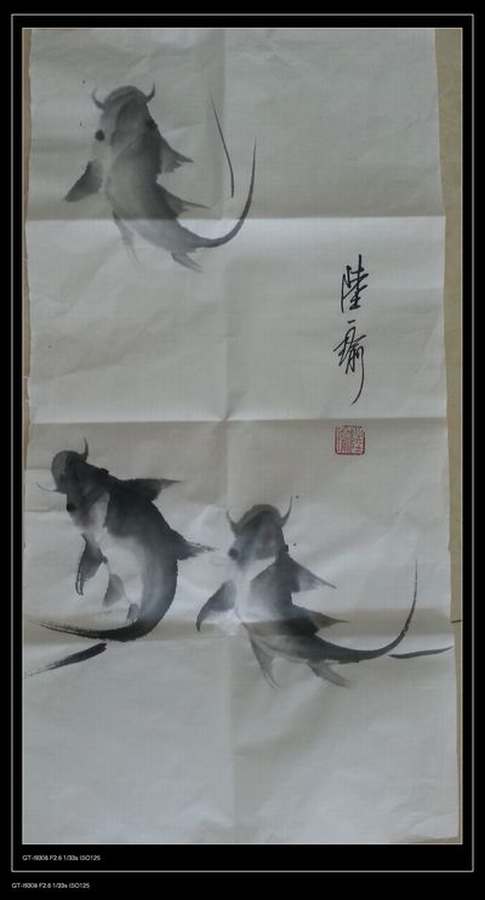 陸瑜
GT-I9308 F2.6 1/33s ISO125
GT-I9308 F2.6 1/33s ISO125